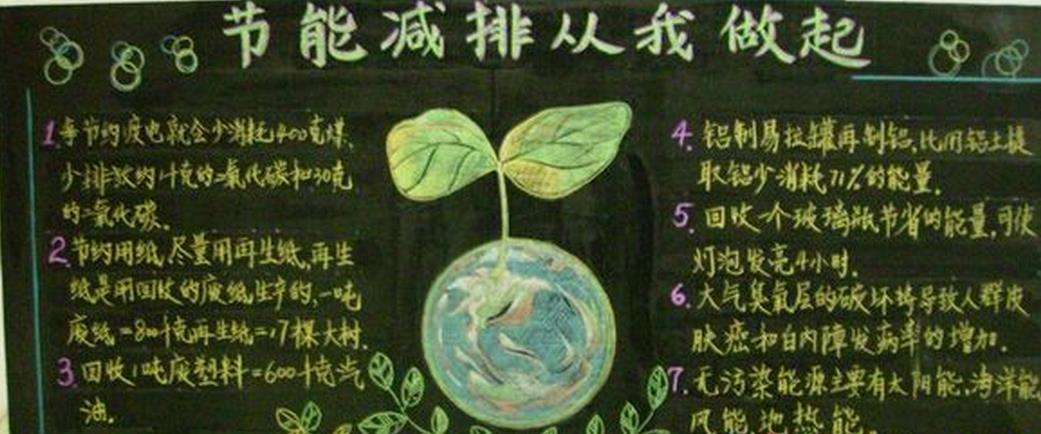 节能减排从我做起
1.每节约1度电就会少消耗400克煤、
少排放约1千克的二氧化碳和30克
的二氧化碳。
2.节约用纸,尽量用再生纸,再生
纸是用回收的废纸生产的,一吨
废纸=800千克再生纸=17棵大树.
3.回收1吨废塑料=600千克汽
油.
4.铝制易拉罐再制铝,比用铝土提
取铝少消耗71%的能量.
5.回收一个玻璃瓶节省的能量,可使
灯泡发亮4小时.
6.大气臭氧层的破坏将导致人群皮
肤癌和白内障发病率的增加.
7.无污染能源主要有太阳能,海洋能
风能,地热能.